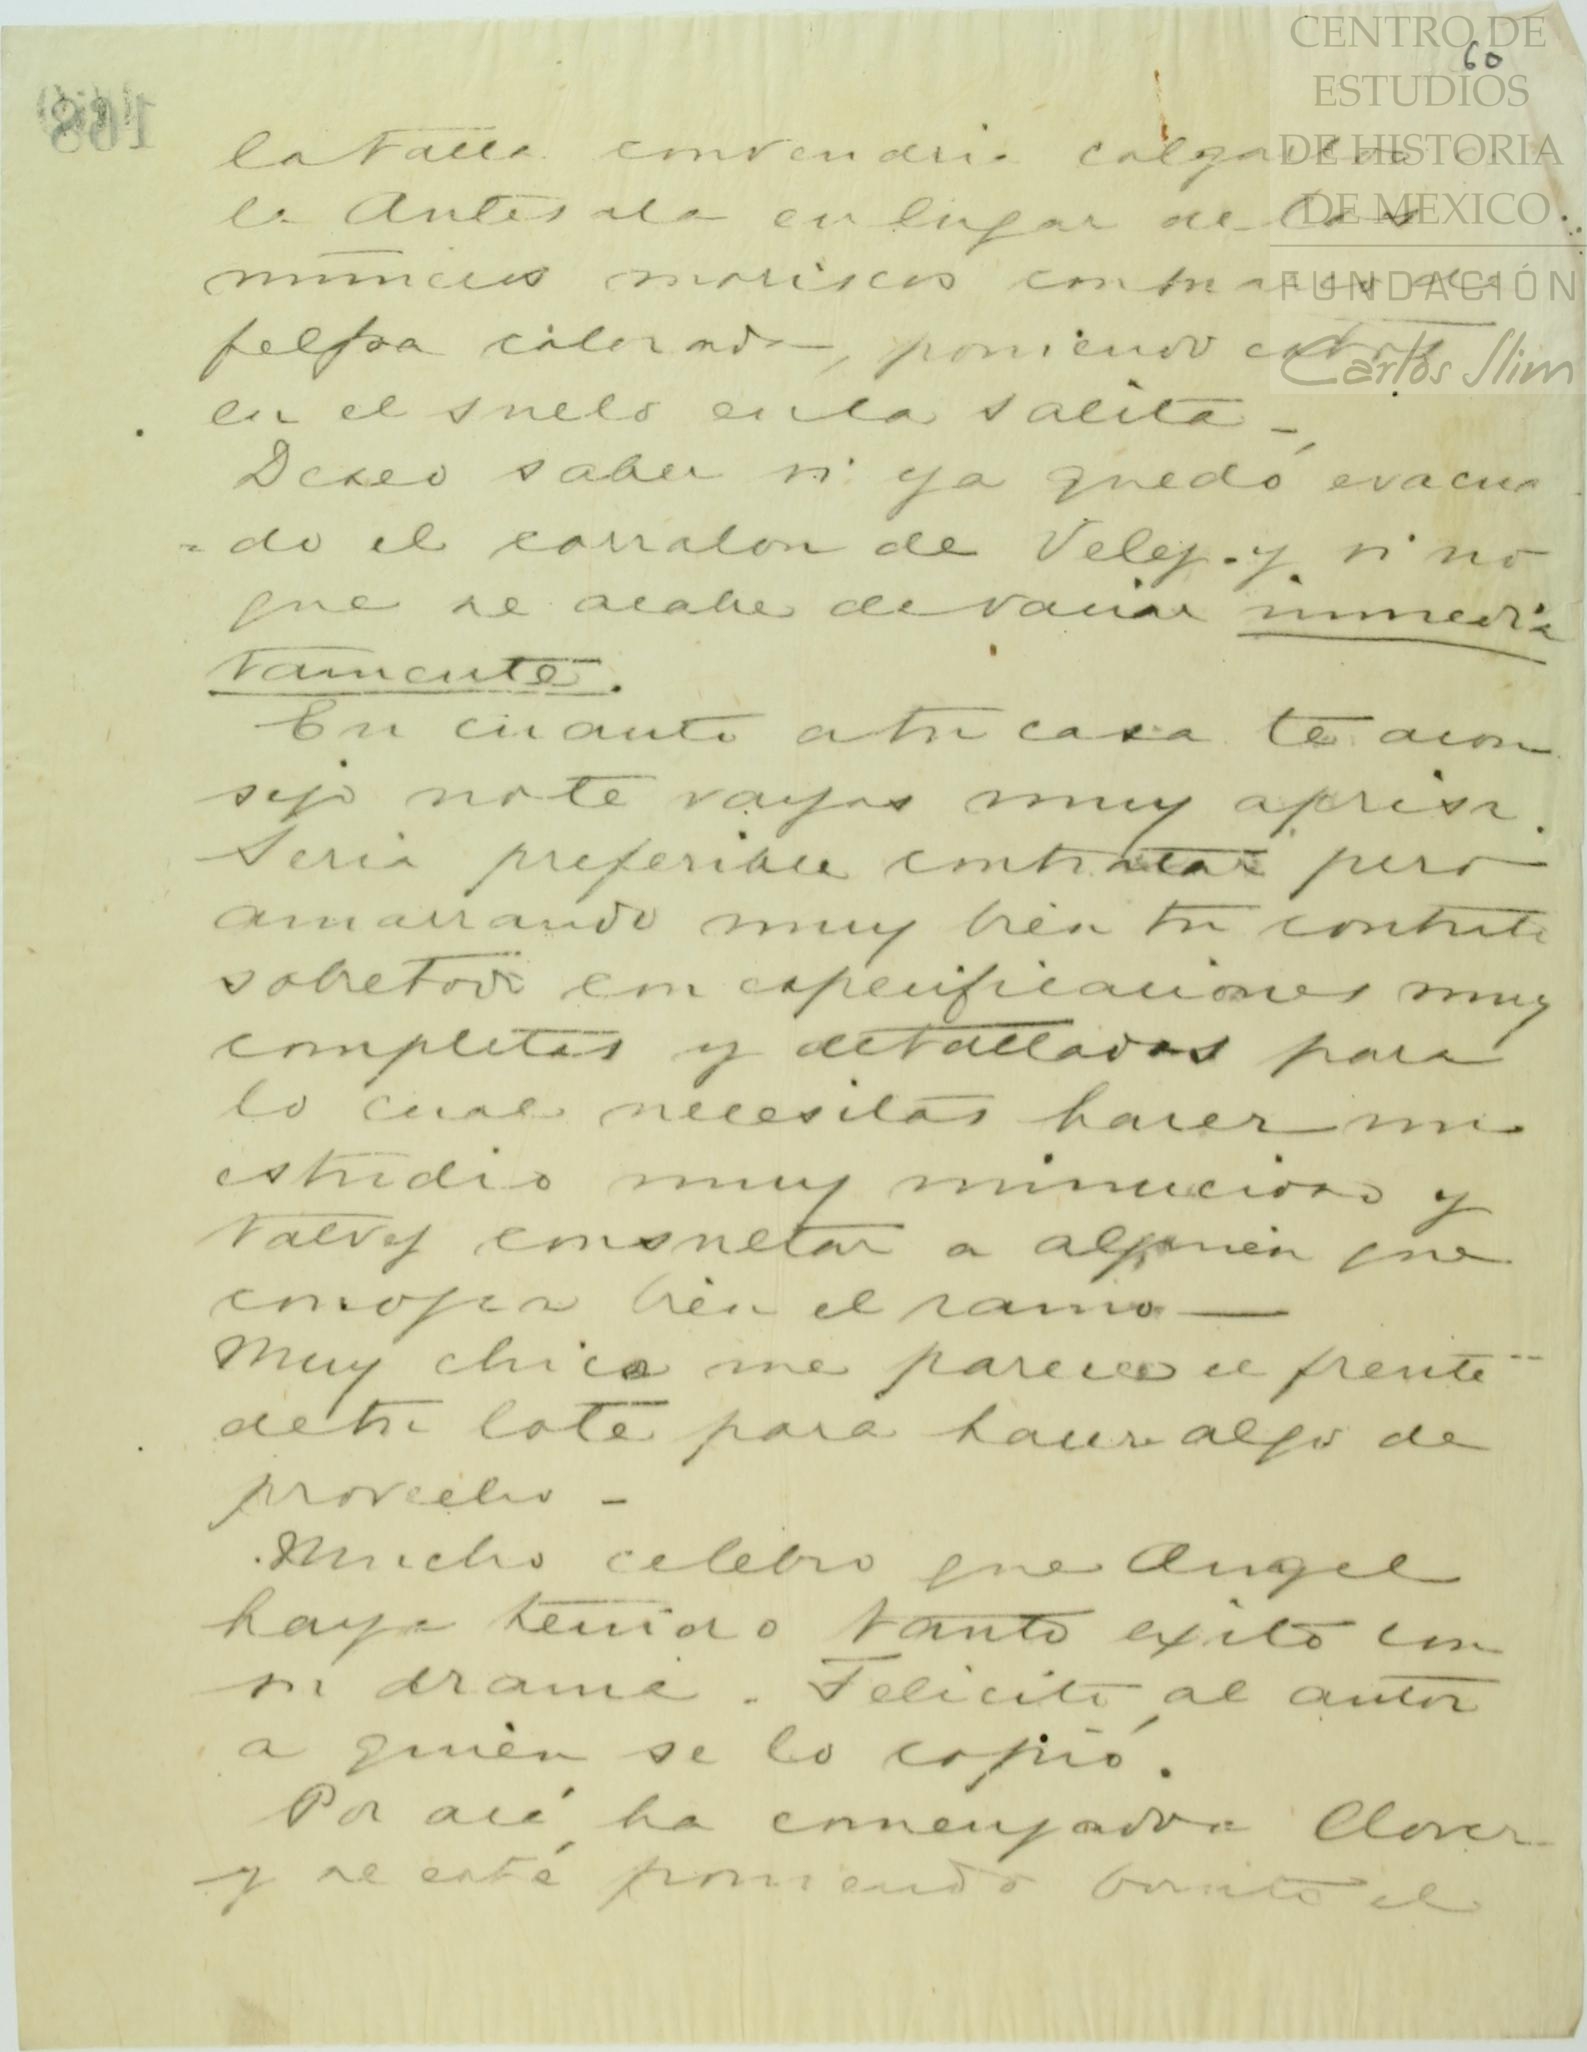 CENTRO DE
ESTUDIOS
DE HISTORIA
DE MEXICO
FUNDACIÓN
Carlos Slim
60
168
la talla convendria colgarlo
la Antesala en lugar de los
moriscos con marco de
felpa colorada, poniendo estos
en el suelo en la salita -
Deseo saber si ya quedó evacua
- do el corralon de Velez y si no
que se acabe de vaciar inmedia
tamente.
En cuanto a tu casa te acon
sejo no te vayas muy aprisa.
Seria preferible contratar pero
amarrando muy bien tu contrato
sobretodo con especificaciones muy
completas y detalladas para
lo cual necesitas hacer un
estudio muy minucioso y
talvez consultar a alguien que
conozca bien el ramo —
Muy chico me parece el frente
de tu lote para hacer algo de
provecho -
Mucho celebro que Angel
haya tenido tanto exito con
su drama. Felicito al autor
a quien se lo copió.
Por acá ha comenzado a llover
y se está poniendo bonito el